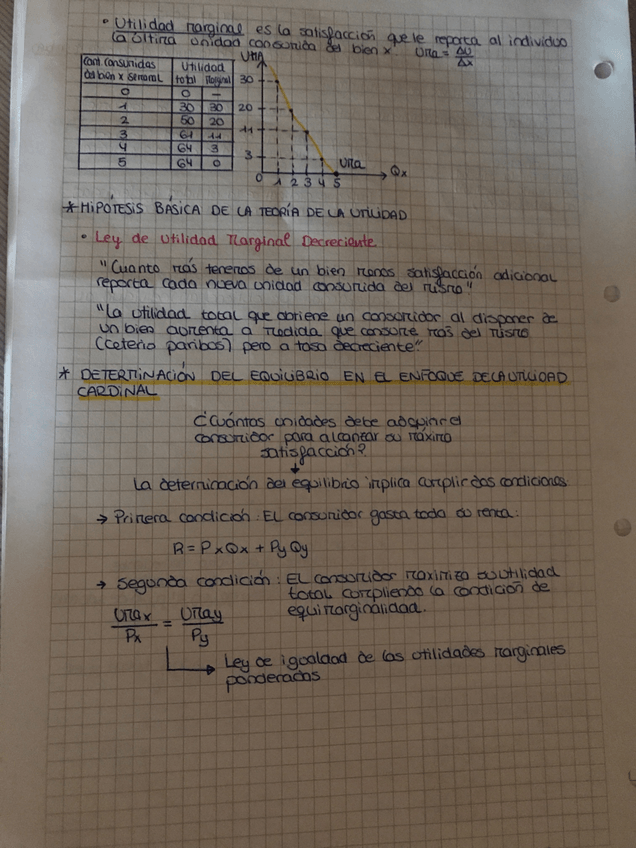 • Utilidad marginal es la satisfacción que le reporta al individuo
la última unidad consumida del bien x. Uma = ΔU/Δx
Cant consumidas del bien x semanal | Utilidad total | Marginal
0 | 0 | —
1 | 30 | 30
2 | 50 | 20
3 | 61 | 11
4 | 64 | 3
5 | 64 | 0
Uma
30
20
11
3
0 1 2 3 4 5
Uma
Qx
* HIPÓTESIS BÁSICA DE LA TEORÍA DE LA UTILIDAD
• Ley de Utilidad Marginal Decreciente
"Cuanto más tenemos de un bien menos satisfacción adicional
reporta cada nueva unidad consumida del mismo"
"La utilidad total que obtiene un consumidor al disponer de
un bien aumenta a medida que consume más del mismo
(ceterio paribos) pero a tasa decreciente."
* DETERMINACIÓN DEL EQUILIBRIO EN EL ENFOQUE DE LA UTILIDAD
CARDINAL
¿Cuántas unidades debe adquirir el
consumidor para alcanzar su máxima
satisfacción?
La determinación del equilibrio implica cumplir dos condiciones:
→ Primera condición: El consumidor gasta toda su renta:
R = Px Qx + Py Qy
→ Segunda condición: El consumidor maximiza su utilidad
total cumpliendo la condición de
equimarginalidad.
Umax/Px = Umay/Py
Ley de igualdad de las utilidades marginales
ponderadas